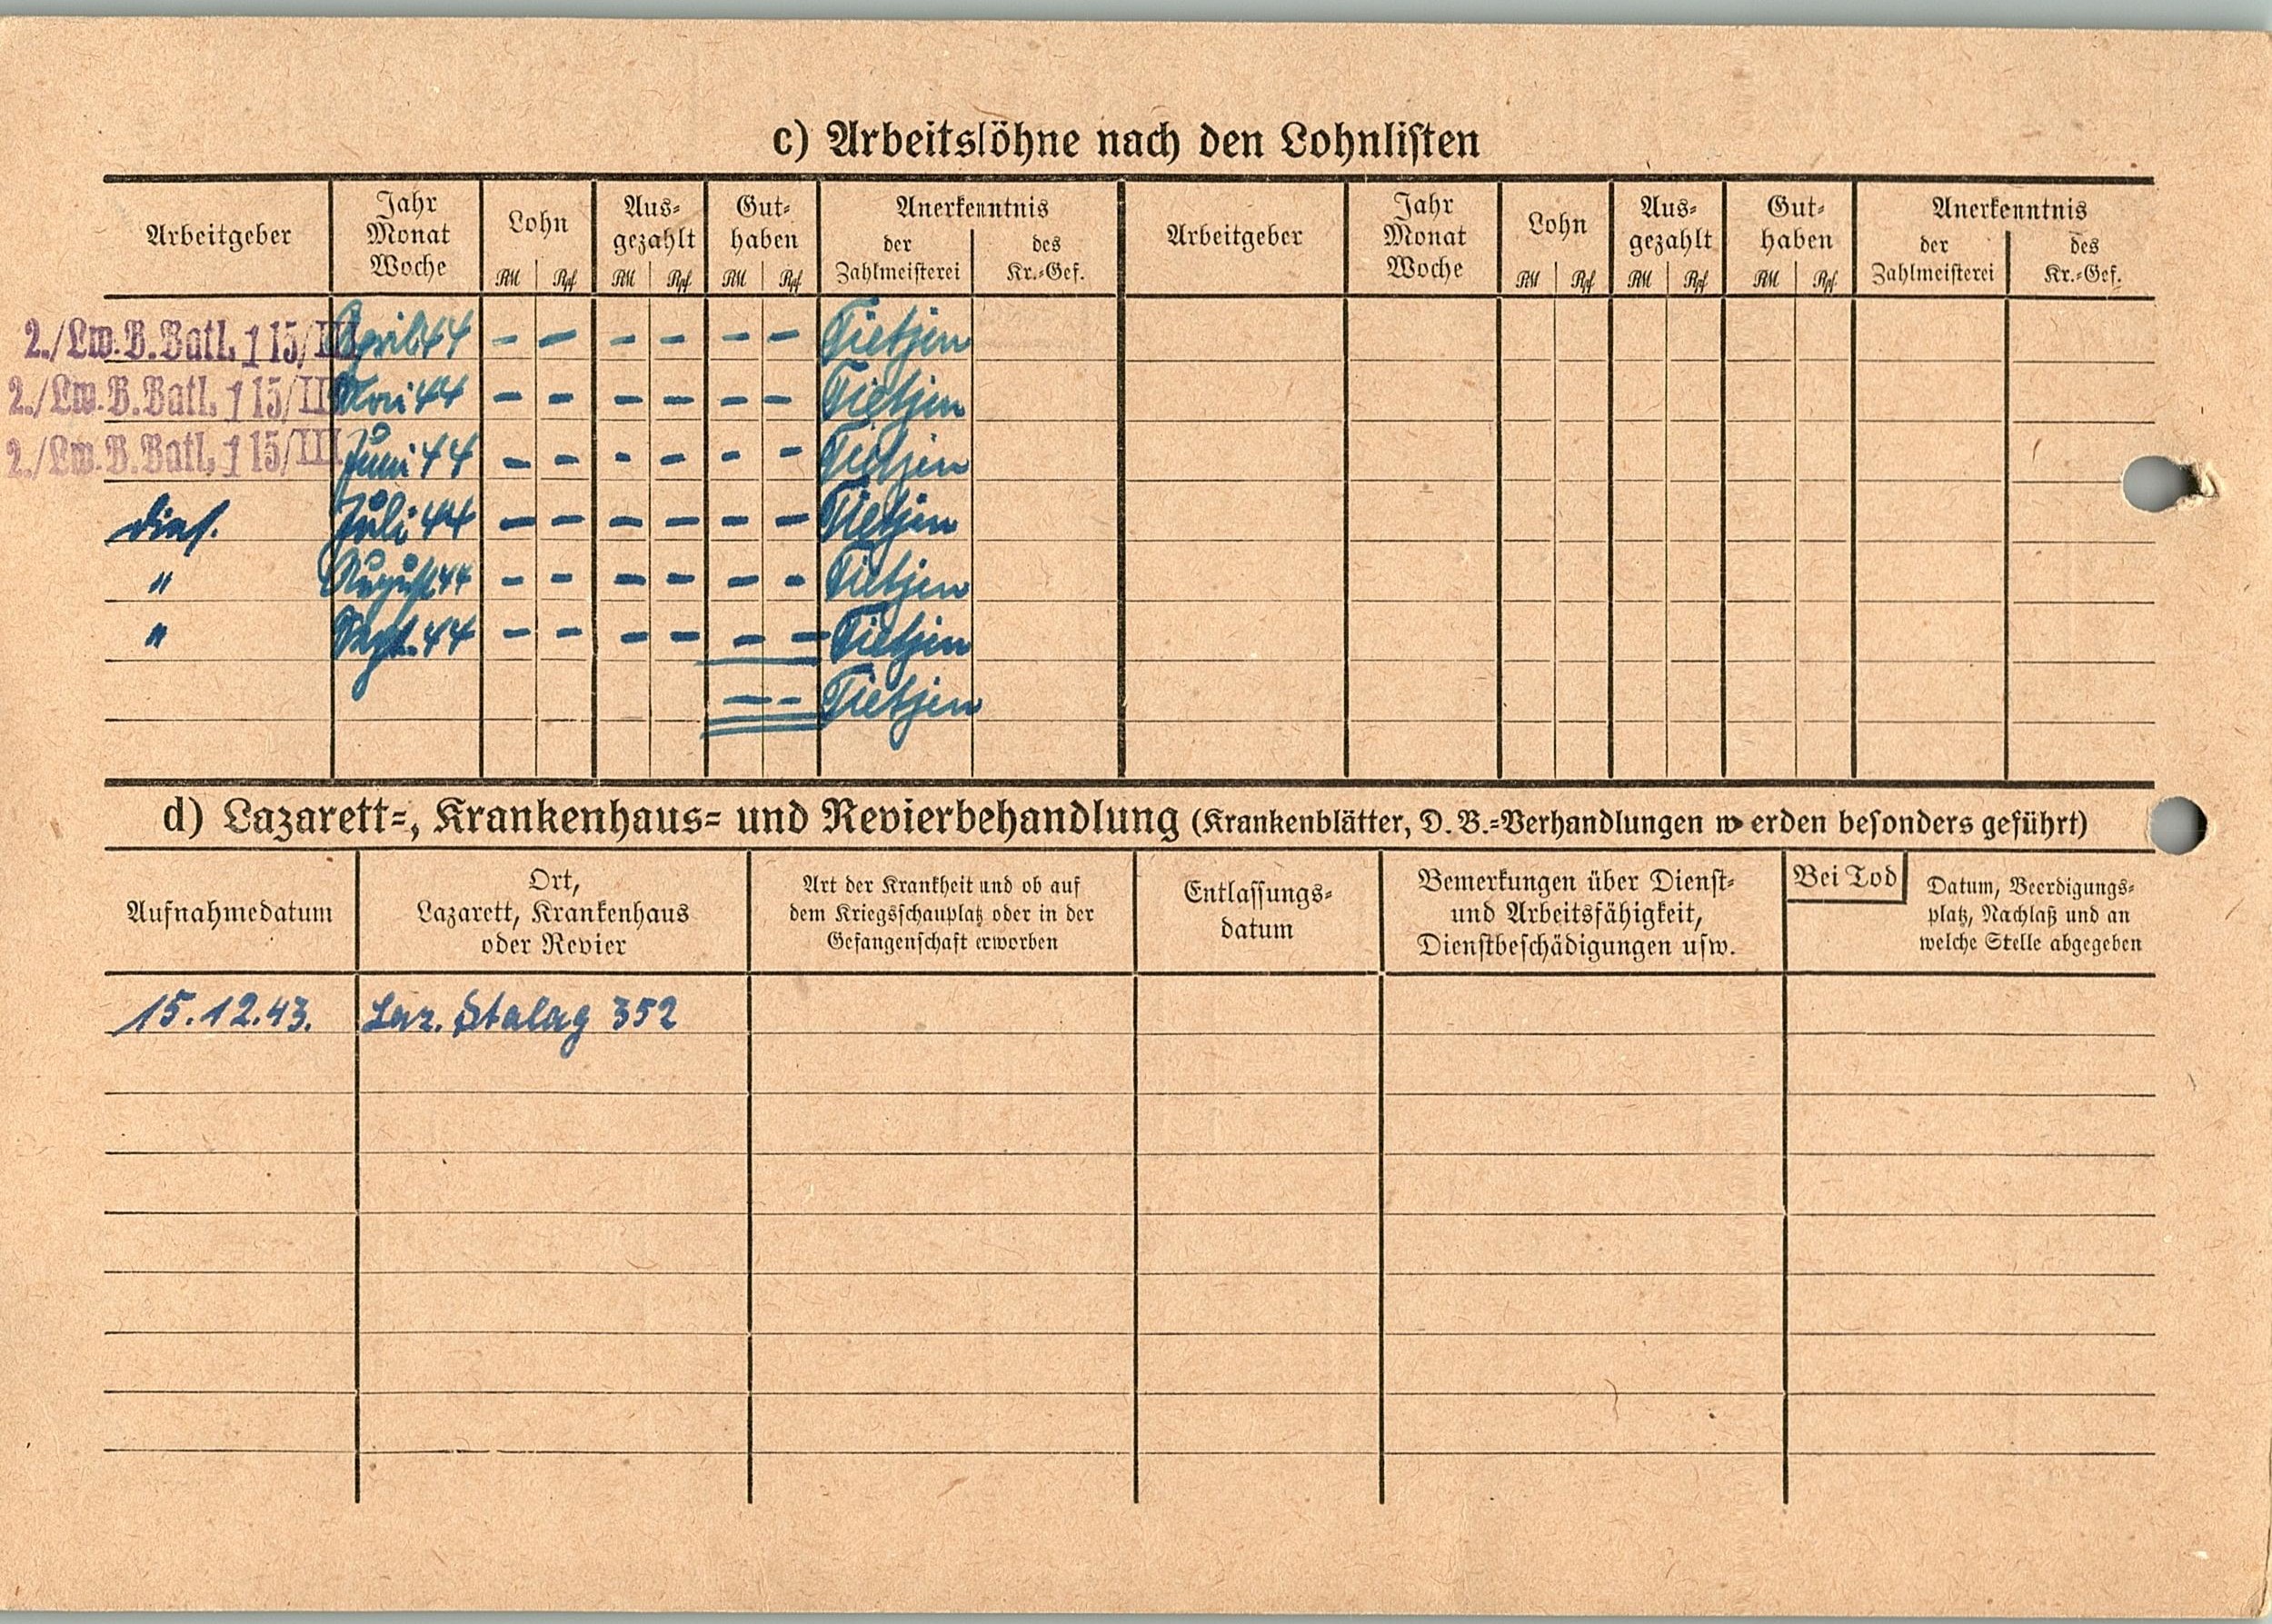 c) Arbeitslöhne nach den Lohnlisten
Arbeitgeber Jahr Monat Woche Lohn Aus-gezahlt Gut-haben Anerkenntnis der Zahlmeisterei des Kr.-Gef. Arbeitgeber Jahr Monat Woche Lohn Aus-gezahlt Gut-haben Anerkenntnis der Zahlmeisterei des Kr.-Gef.
RM Rpf RM Rpf RM Rpf RM Rpf RM Rpf RM Rpf
2./Lw.B.Batl. 115/III April 44 - - - - - - Tietjen
2./Lw.B.Batl. 115/III Mai 44 - - - - - - Tietjen
2./Lw.B.Batl. 115/III Juni 44 - - - - - - Tietjen
Juli 44 - - - - - - Tietjen
" August 44 - - - - - - Tietjen
" Sept. 44 - - - - - - Tietjen
- - Tietjen
d) Lazarett-, Krankenhaus- und Revierbehandlung (Krankenblätter, D. B.-Verhandlungen werden besonders geführt)
Aufnahmedatum Ort, Lazarett, Krankenhaus oder Revier Art der Krankheit und ob auf dem Kriegsschauplatz oder in der Gefangenschaft erworben Entlassungs-datum Bemerkungen über Dienst- und Arbeitsfähigkeit, Dienstbeschädigungen usw. Bei Tod Datum, Beerdigungs-platz, Nachlaß und an welche Stelle abgegeben
15.12.43. Laz. Stalag 352